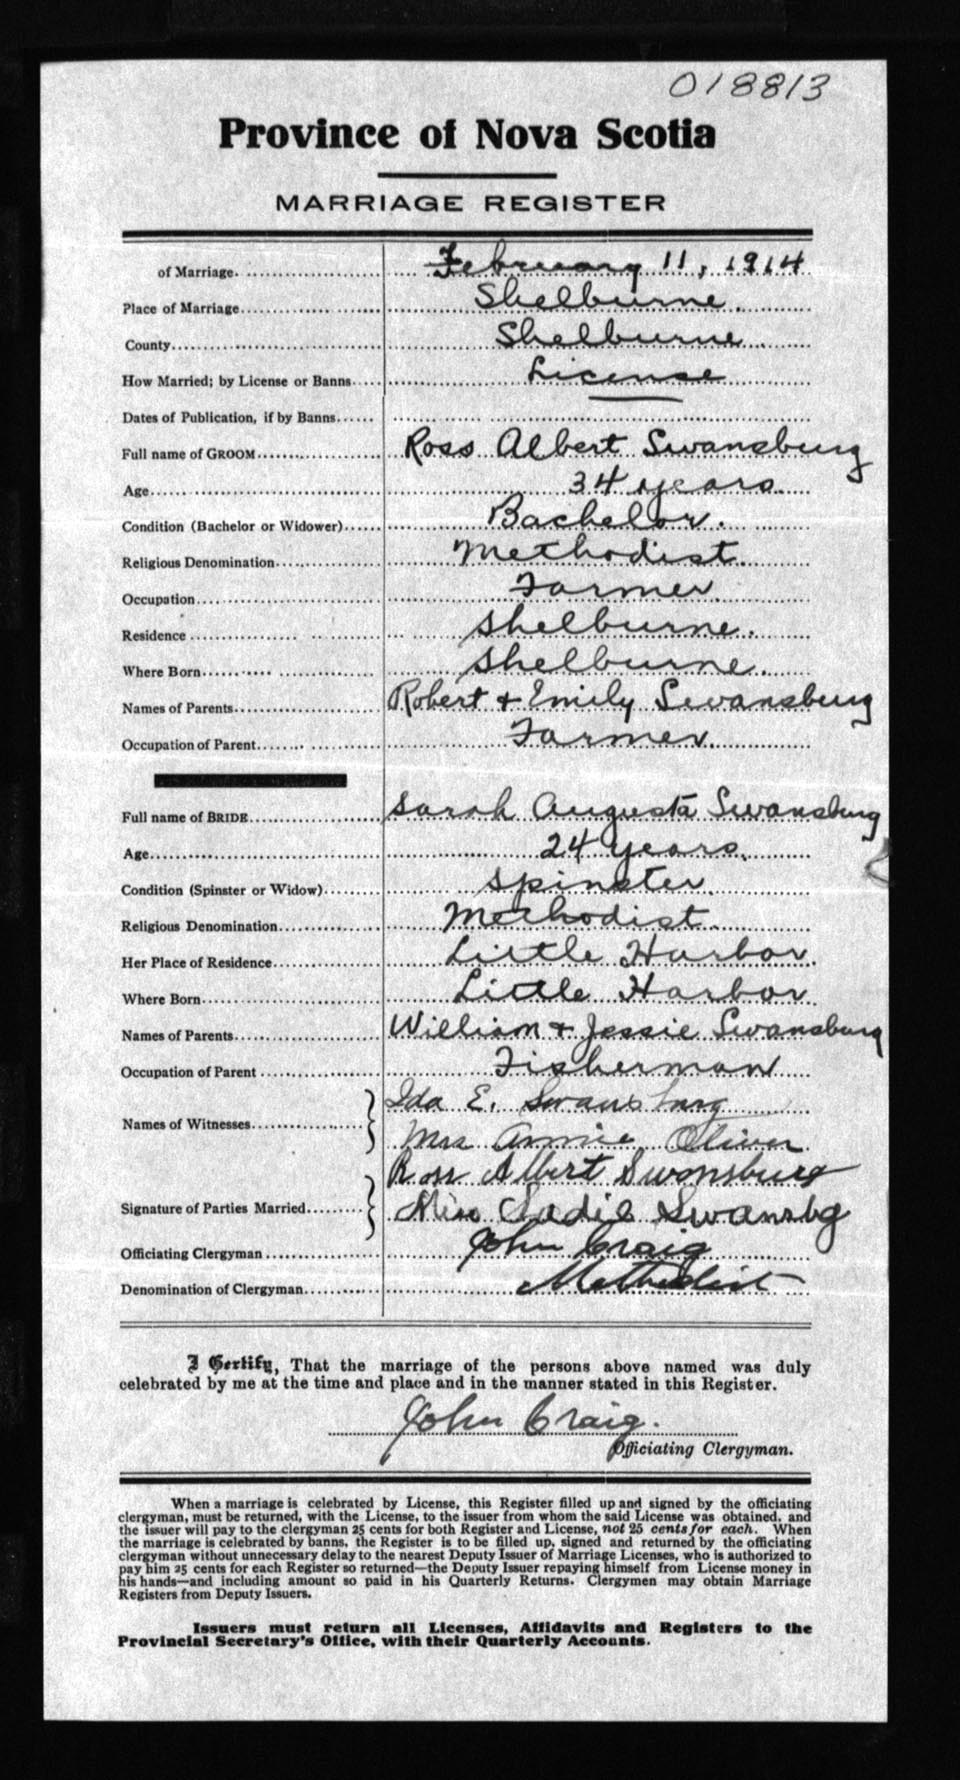 018813
Province of Nova Scotia
MARRIAGE REGISTER
of Marriage. February 11, 1914
Place of Marriage Shelburne.
County Shelburne
How Married; by License or Banns License
Dates of Publication, if by Banns
Full name of GROOM Ross Albert Swansburg
Age 34 years.
Condition (Bachelor or Widower) Bachelor.
Religious Denomination Methodist
Occupation Farmer
Residence Shelburne.
Where Born Shelburne.
Names of Parents Robert + Emily Swansburg
Occupation of Parent Farmer.
Full name of BRIDE Sarah Augusta Swansburg
Age 24 years.
Condition (Spinster or Widow) Spinster
Religious Denomination Methodist
Her Place of Residence Little Harbor.
Where Born Little Harbor
Names of Parents William + Jessie Swansburg
Occupation of Parent Fisherman
Names of Witnesses Ida E. Swansburg
Mrs Annie Oliver
Signature of Parties Married Ross Albert Swonsburg
Miss Sadie Swansbg
Officiating Clergyman John Craig
Denomination of Clergyman Methodist
I Certify, That the marriage of the persons above named was duly
celebrated by me at the time and place and in the manner stated in this Register.
John Craig.
Officiating Clergyman.
When a marriage is celebrated by License, this Register filled up and signed by the officiating
clergyman, must be returned, with the License, to the issuer from whom the said License was obtained, and
the issuer will pay to the clergyman 25 cents for both Register and License, not 25 cents for each. When
the marriage is celebrated by banns, the Register is to be filled up, signed and returned by the officiating
clergyman without unnecessary delay to the nearest Deputy Issuer of Marriage Licenses, who is authorized to
pay him 25 cents for each Register so returned—the Deputy Issuer repaying himself from License money in
his hands—and including amount so paid in his Quarterly Returns. Clergymen may obtain Marriage
Registers from Deputy Issuers.
Issuers must return all Licenses, Affidavits and Registers to the
Provincial Secretary's Office, with their Quarterly Accounts.